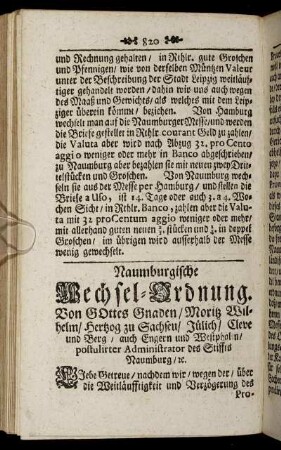 820
und Rechnung gehalten/ in Rthlr. gute Groschen
und Pfennigen/ wie von derselben Müntzen Valeur
unter der Beschreibung der Stadt Leipzig weitläuf-
tiger gehandelt worden/ dahin wir uns auch wegen
des Maaß und Gewichts/ als welches mit dem Leip-
ziger überein kömm/ beziehen. Von Hamburg
wechselt man auf die Naumburger Messe/und werden
die Briefe gestellet in Rthlr. courant Geld zu zahlen/
die Valuta aber wird nach Abzug 32. pro Cento
aggio weniger oder mehr in Banco abgeschrieben/
zu Naumburg aber bezahlen sie mit neuen zwey Drit-
telstücken und Groschen. Von Naumburg wech-
seln sie aus der Messe per Hamburg/ und stellen die
Briefe a Uso, ist 14. Tage oder auch 3. a 4. Wo-
chen Sicht/ in Rthlr. Banco, zahlen aber die Valu-
ta mit 32 pro Centum aggio weniger oder mehr/
mit allerhand guten neuen ⅔. stücken und ⅓. in doppel
Groschen/ im übrigen wird ausserhalb der Messe
wenig gewechselt.
Naumburgische
Wechsel-Ordnung.
Von GOttes Gnaden/ Moritz Wil-
helm/ Hertzog zu Sachsen/ Jülich/ Cleve
und Berg/ auch Engern und Westphalen/
postulirter Administrator des Stiffts
Naumburg/ ꝛc.
LIebe Getreue/ nachdem wir/ wegen der/ über
die Weitläufftigkeit und Verzögerung des
Pro-